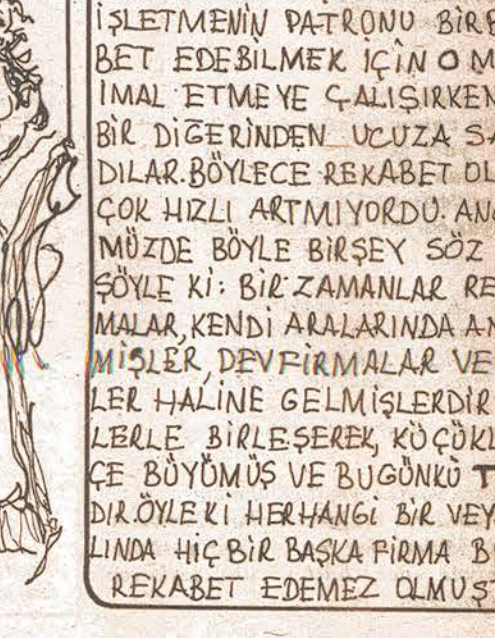 İŞLETMENİN PATRONU BİRB
BET EDEBİLMEK İÇİN O M
İMAL ETMEYE ÇALIŞIRKEN
BİR DİĞERİNDEN UCUZA SA
DILAR. BÖYLECE REKABET OL
ÇOK HIZLI ARTMIYORDU. AN
MÜZDE BÖYLE BİRŞEY SÖZ
ŞÖYLE Kİ: BİR ZAMANLAR RE
MALAR, KENDİ ARALARINDA AN
MİŞLER, DEV FİRMALAR VE
LER HALİNE GELMİŞLERDİR
LERLE BİRLEŞEREK, KÜÇÜKL
ÇE BÜYÜMÜŞ VE BUGÜNKÜ T
DIR. ÖYLE Kİ HERHANGİ BİR VEY
LINDA HİÇ BİR BAŞKA FİRMA B
REKABET EDEMEZ OLMUŞ